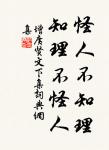 怪人不知理
知理不怪人
增广贤文下集詞典網